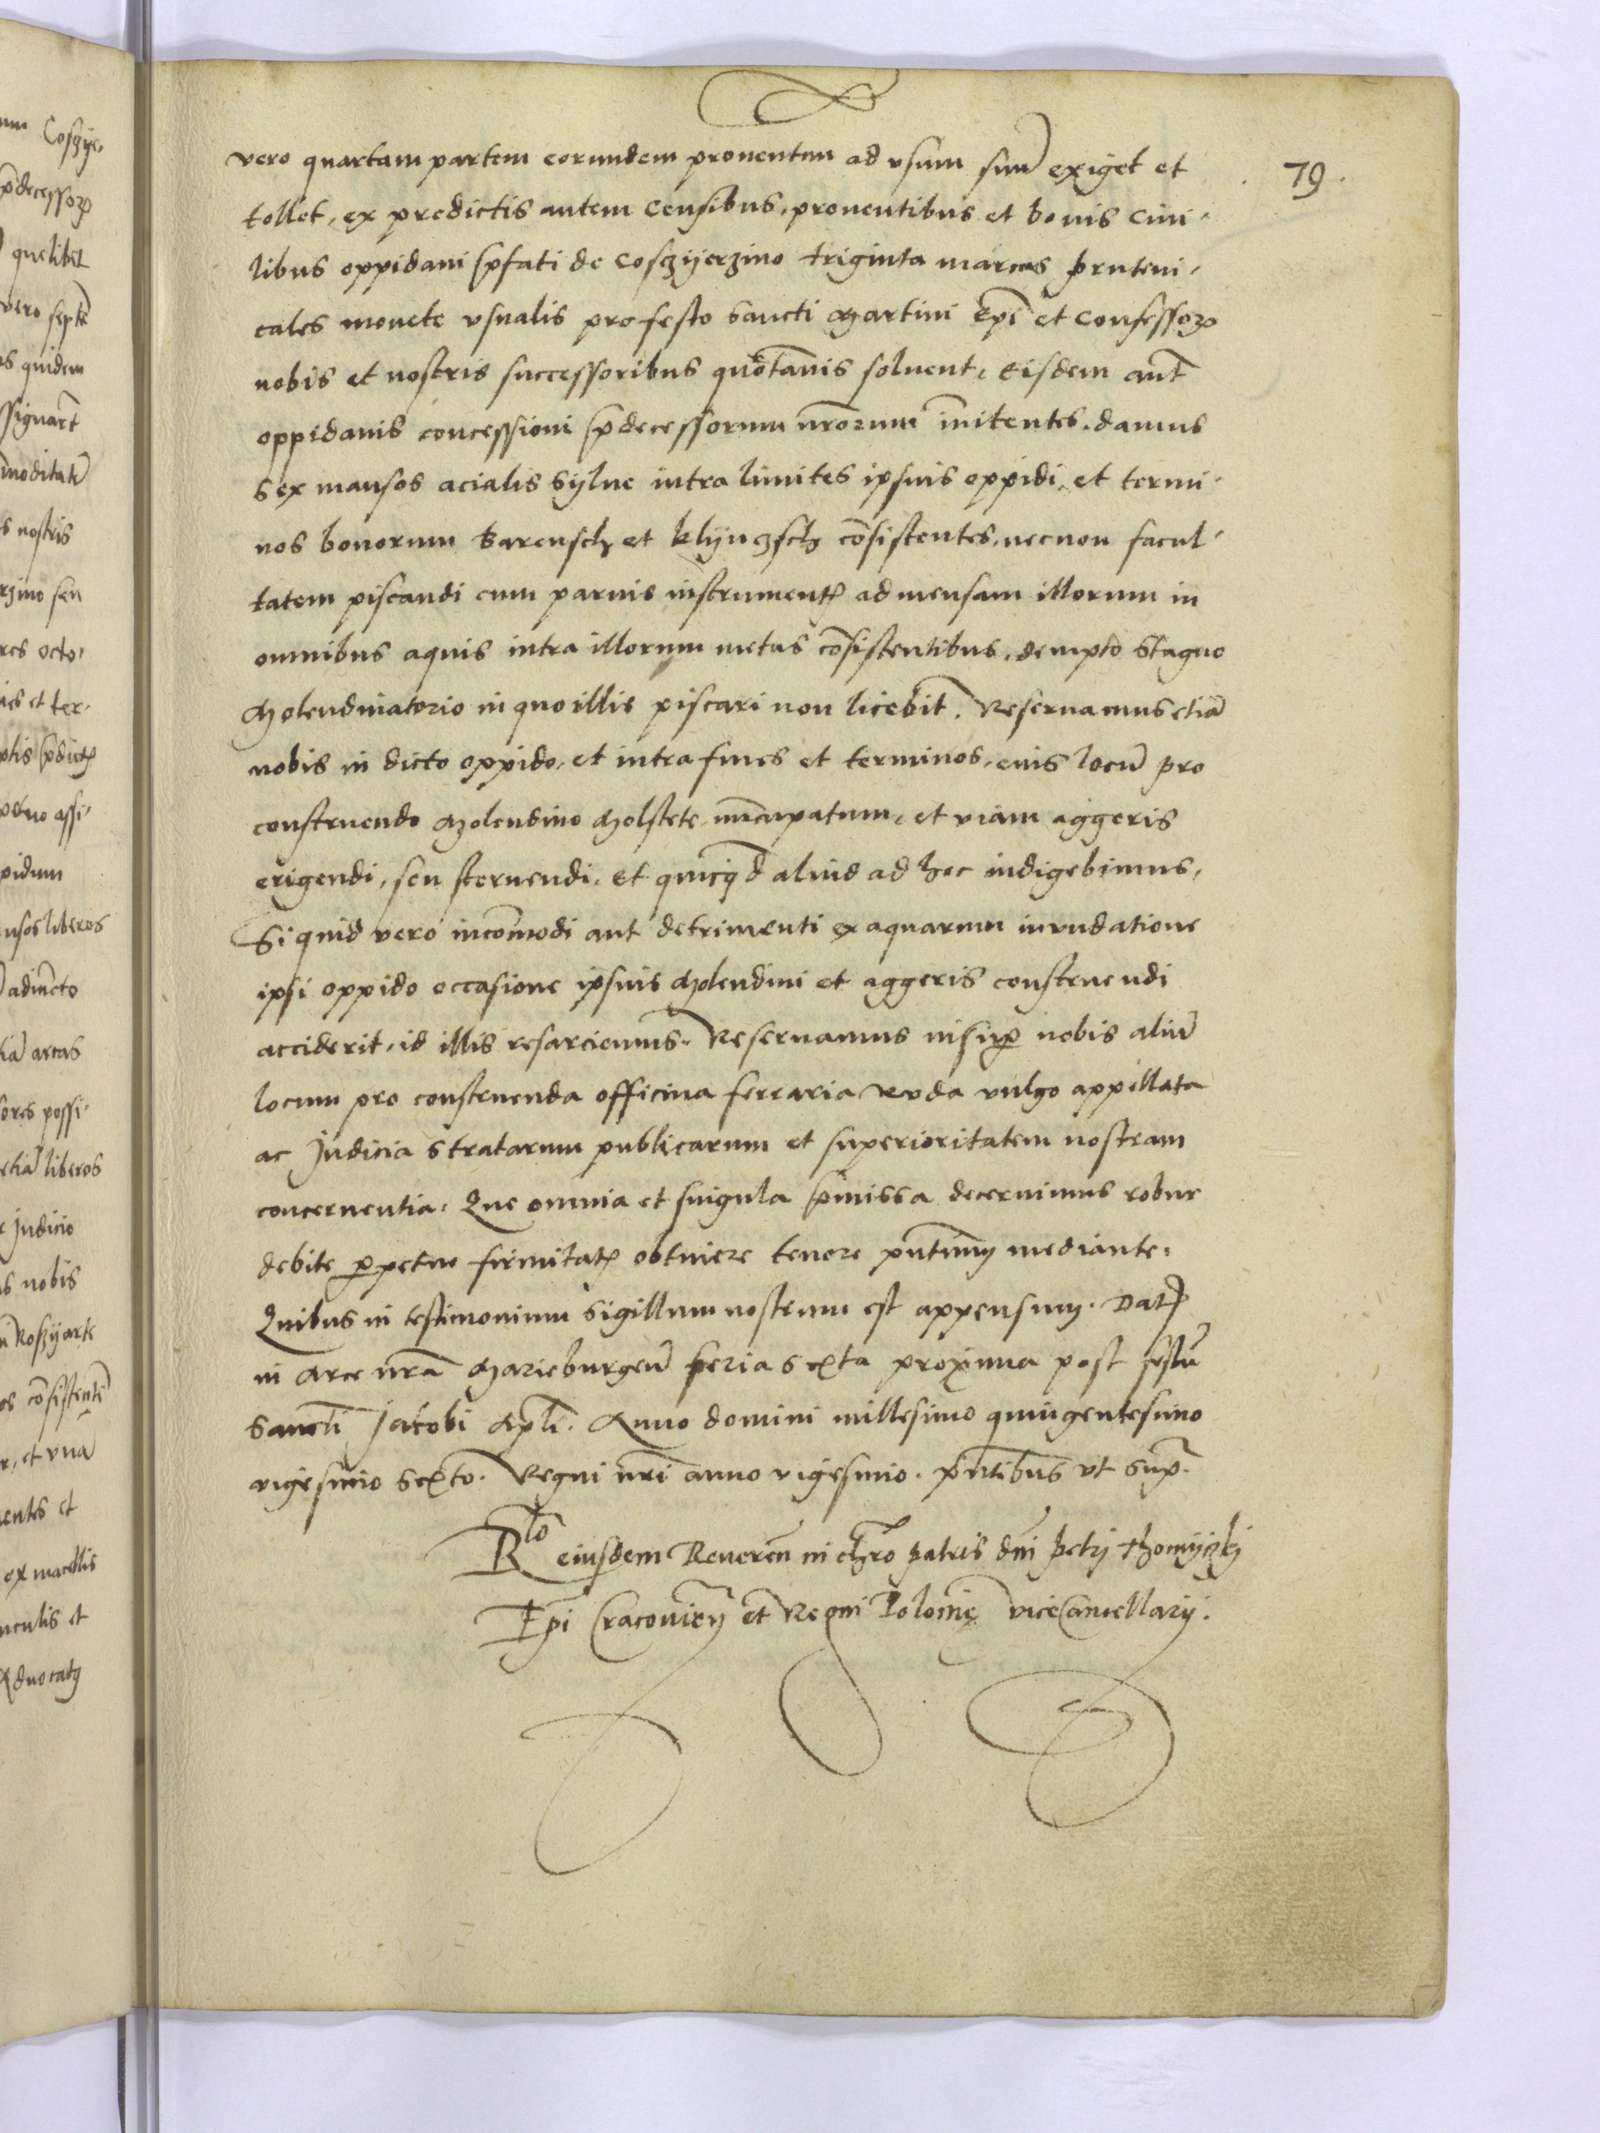 79.
vero quartam partem eorundem proventuu ad usum suu̅ exiget et
tollet, ex predictis autem censibus, proventibus et bonis civi-
libus oppidani p̅fati de Coszijerzino triginta marcas pruteni-
cales monete usualis pro festo sancti Martini Ep̅i et Confessor
nobis et nostris successoribus quotannis solvent, Eisdem aut̅
oppidanis concessioni p̅decessorum nr̅orum in̅itentes, damus
sex mansos acialis sylve intra limites ipsius oppidi, et termi-
nos bonorum Barensch et Klynczsch co̅sistentes, necnon facul-
tatem piscandi cum parvis instrument̅ ad mensam illorum in
omnibus aquis intra illorum metas co̅sistentibus, dempto stagno
Molendinatorio in quo illis piscari non licebit. Reservamus etia̅
nobis in dicto oppido, et intra fines et terminos, eius locu̅ pro
construendo Molendino Molstete nu̅cupatum, et viam aggeris
erigendi, seu sternendi, et quicq̅d aliud ad hec indigebimus,
Si quid vero inco̅modi aut detrimenti ex aquarum inundatione
ipsi oppido occasione ipsius Molendini et aggeris construendi
acciderit, id illis resarciemus. Reservamus insup̅ nobis aliu̅
locum pro construenda officina ferraria Ruda vulgo appellata
ac Judicia stratarum publicarum et superioritatem nostram
concernentia. Que omnia et singula p̅missa decernimus robur
debite p̅petue firmitat̅ obtinere tenore pn̅tium mediante.
Quibus in testimonium sigillum nostrum est appensum. Dat̅
in Arce nr̅a Marieburgen̅ feria sexta proxima post festu̅
Sancti Jacobi Apl̅i. Anno domini millesimo quingentesimo
vigesimo sexto. Regni nr̅i anno vigesimo. pn̅tibus ut sup̅.
Rl̅o eiusdem Reveren̅ in chr̅o patris dn̅i Petri Thomyczkj
Ep̅i Cracovien̅ et Regni Polonie̅ viceCancellarij.